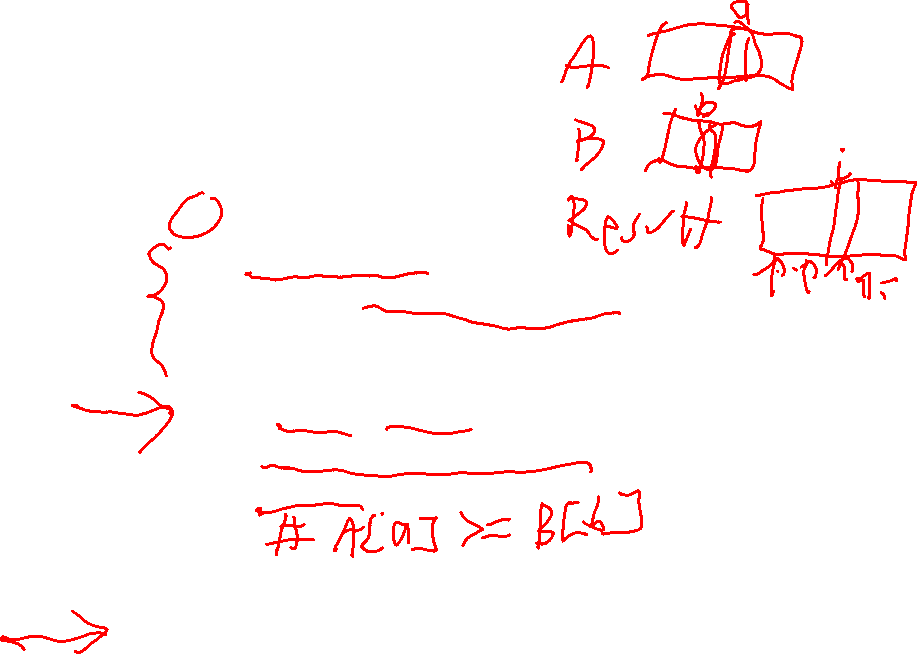 a
A
b
B
i
Result
# A[a] >= B[b]